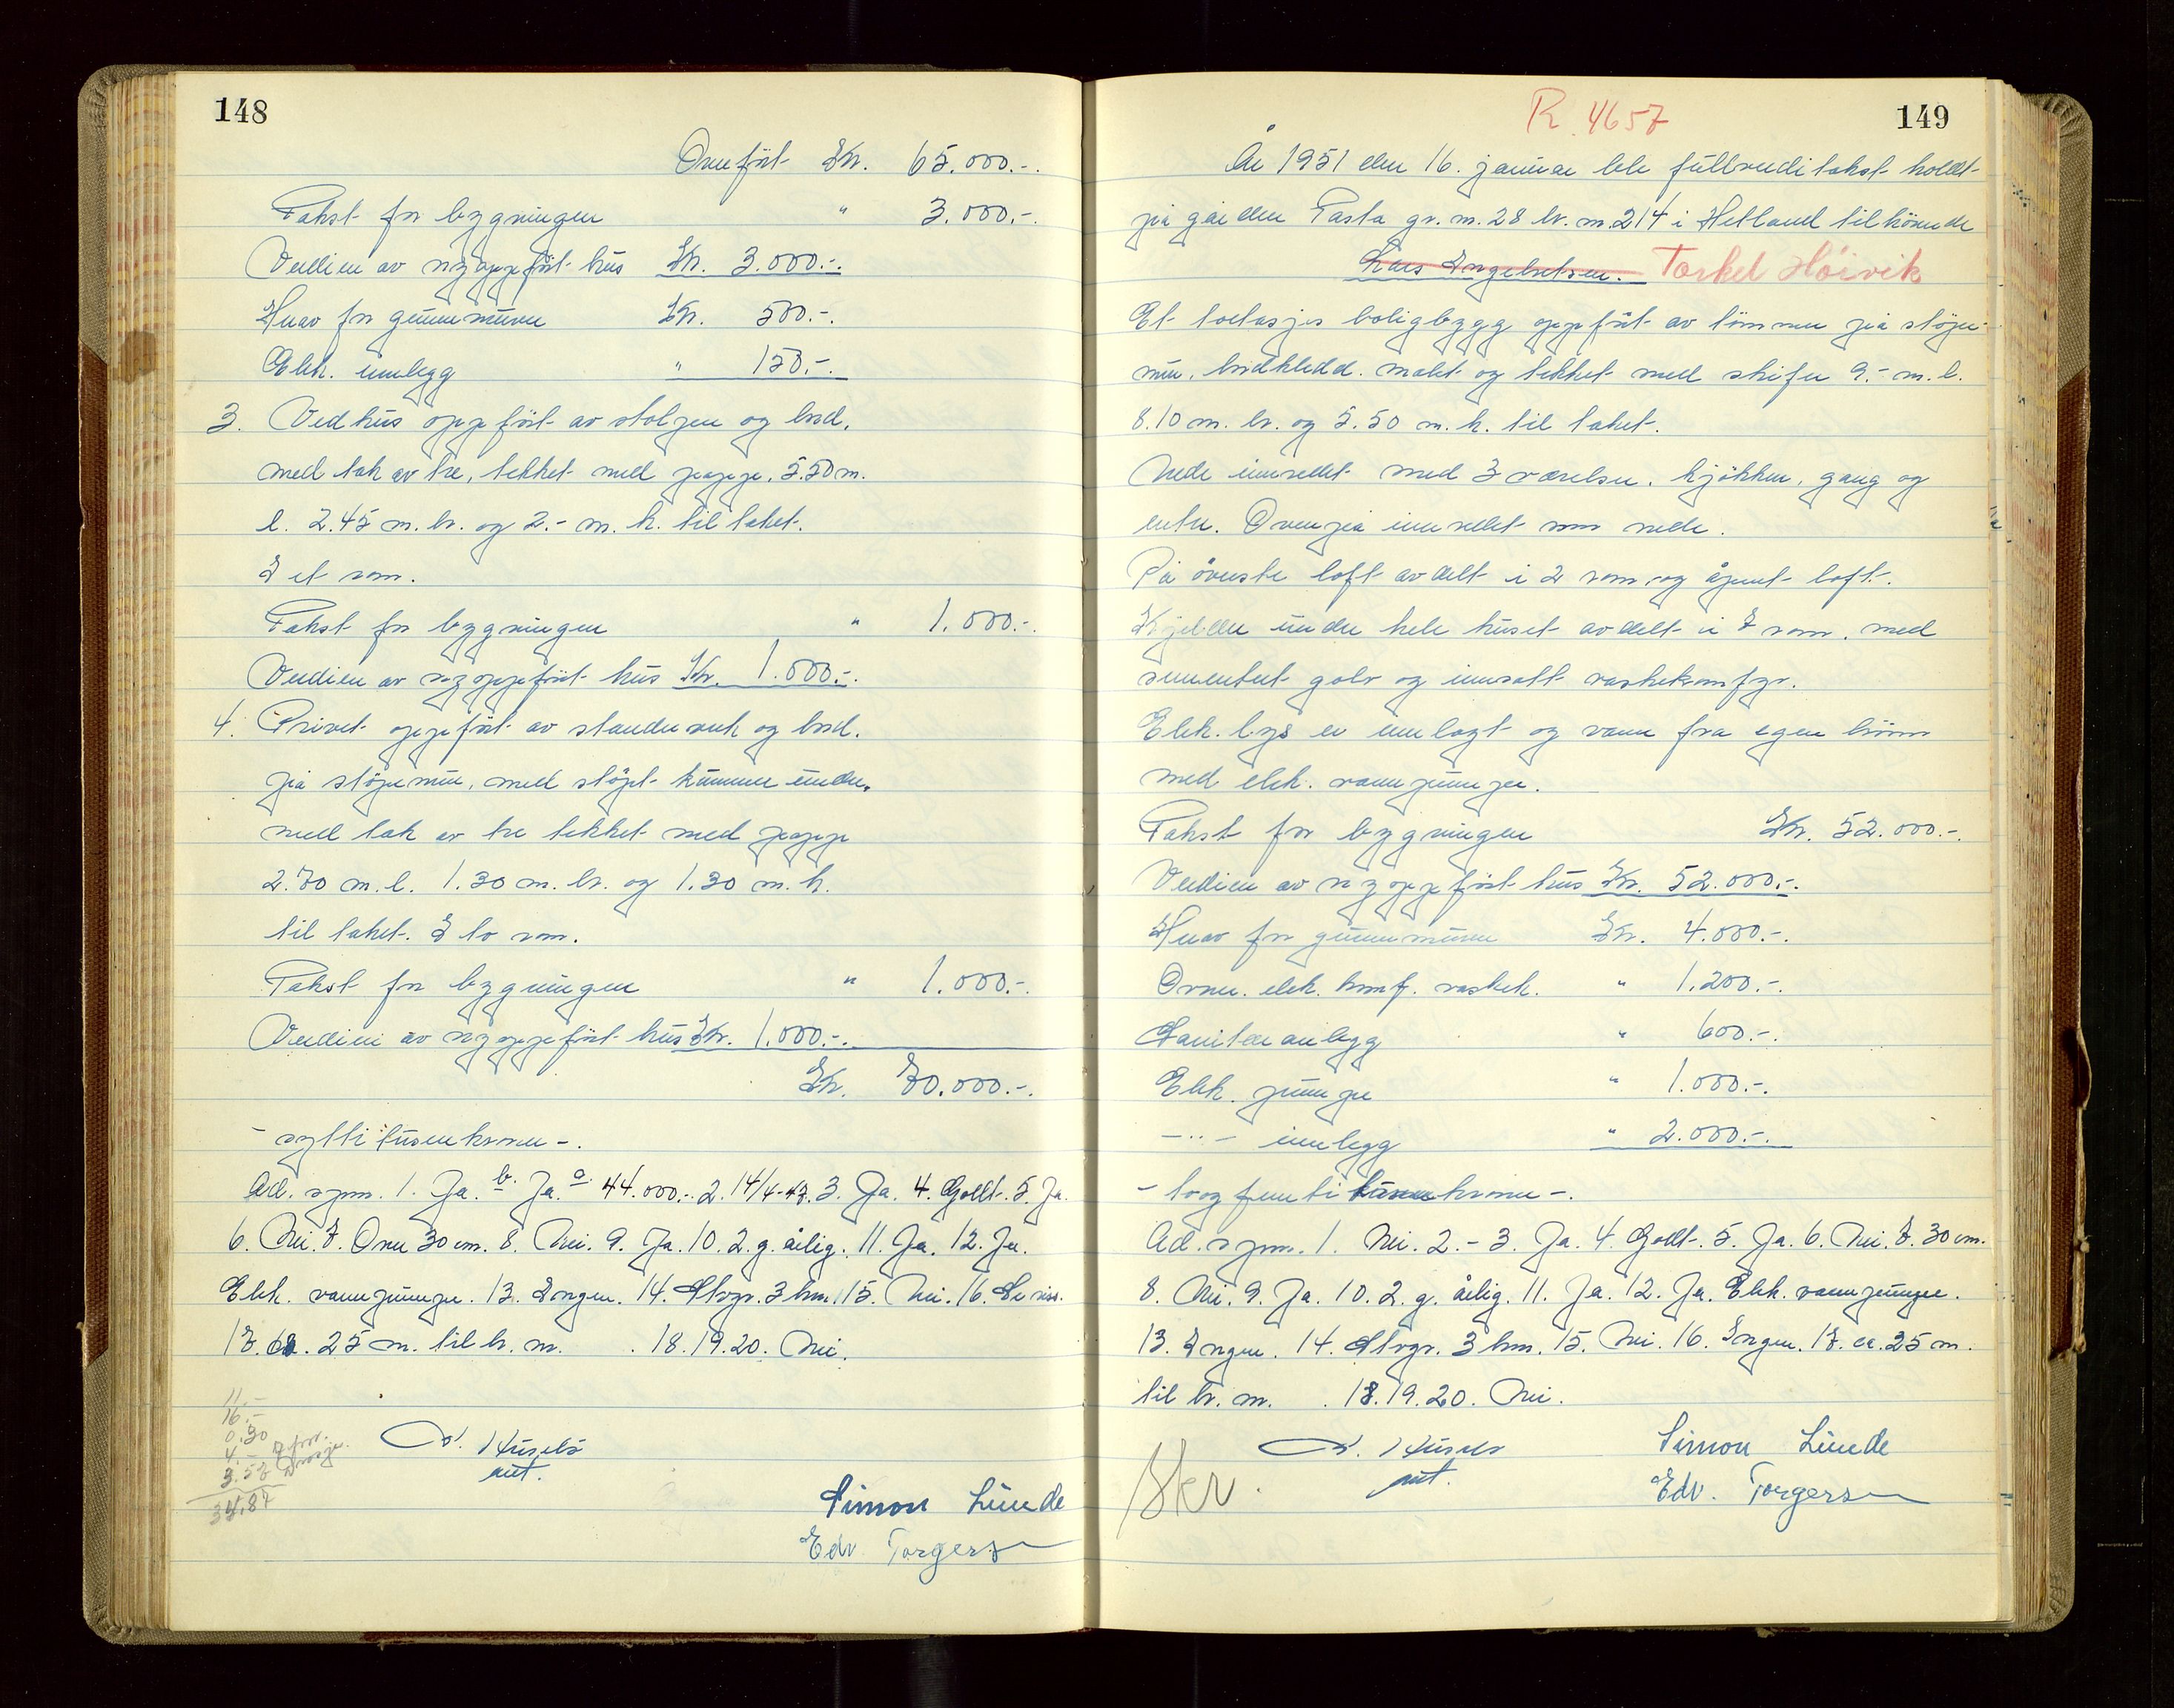 148
Overfört Kr. 65.000.-.
Takst for bygningen " 3.000.-.
Verdien av nyoppfört hus Kr. 3.000.-.
Herav for grunnmuren Kr. 500.-.
Elek. innlegg " 150.-.
3. Vedhus oppfört av stolper og bord,
med tak av tre, tekket med papp, 5.50 m.
l. 2.45 m. br. og 2.- m. h. til taket.
I et rom.
Takst for bygningen " 1.000.-.
Verdien av nyoppfört hus Kr. 1.000.-.
4. Privet oppfört av stenderverk og bord.
på stöpemur, med stöpt kummer under,
med tak av tre tekket med papp
2.70 m. l. 1.30 m. br. og 1.30 m. h.
til taket. I to rom.
Takst for bygningen " 1.000.-.
Verdien av nyoppfört hus Kr. 1.000.-.
Kr. 70.000.-.
- sytti tusen kroner -.
Ad. spm. 1. Ja. b. Ja. a. 44.000.- 2. 14/4-47. 3. Ja. 4. Godt. 5. Ja.
6. Nei. 7. Over 30 cm. 8. Nei. 9. Ja. 10. 2. g. årlig. 11. Ja. 12. Ja.
Elek. vannpumpe. 13. Ingen. 14. Stvgr. 3 km. 15. Nei. 16. Se riss.
17. ca. 25 m. til br. nr. . 18. 19. 20. Nei.
11.-
16.-
0.30
4.-
3.57
34.87
Huseby
aut.
Simon Lunde
Edv. Torgersen
R. 4657
149
År 1951 den 16. januar ble fullverditakst holdt
på gården Tasta gr. nr. 28 br. nr. 214 i Hetland tilhörende
Lars Ingebretsen. Torkel Höivik
Et toetasjes boligbygg oppfört av tömmer på stöpe-
mur, bordkledd, malt og tekket med skifer 9.- m. l.
8.10 m. br. og 5.50 m. h. til taket.
Nede innredet med 3 værelser, kjökken, gang og
entre. Ovenpå innredet som nede.
På överste loft avdelt i 2 rom og åpent loft.
Kjelder under hele huset avdelt i 7 rom, med
sementert golv og innsatt vaskekomfyr.
Elek. lys er innlagt og vann fra egen brönn
med elek. vannpumpe.
Takst for bygningen Kr. 52.000.-.
Verdien av nyoppfört hus Kr. 52.000.-.
Herav for grunnmuren Kr. 4.000.-.
Ovner. elek. komf. vaskek. " 1.200.-.
Sanitæranlegg " 600.-.
Elek. pumpe " 1.000.-.
-"- innlegg " 2.000.-.
- toogfemti tusen kroner -.
Ad. spm. 1. Nei. 2. - 3. Ja. 4. Godt. 5. Ja. 6. Nei. 7. 30 cm.
8. Nei. 9. Ja. 10. 2. g. årlig. 11. Ja. 12. Ja. Elek. vannpumpe.
13. Ingen. 14. Stvgr. 3 km. 15. Nei 16. Ingen. 17. ca. 25 m.
til br. nr. . 18. 19. 20. Nei.
Skr.
Huseby
aut.
Simon Lunde
Edv. Torgersen